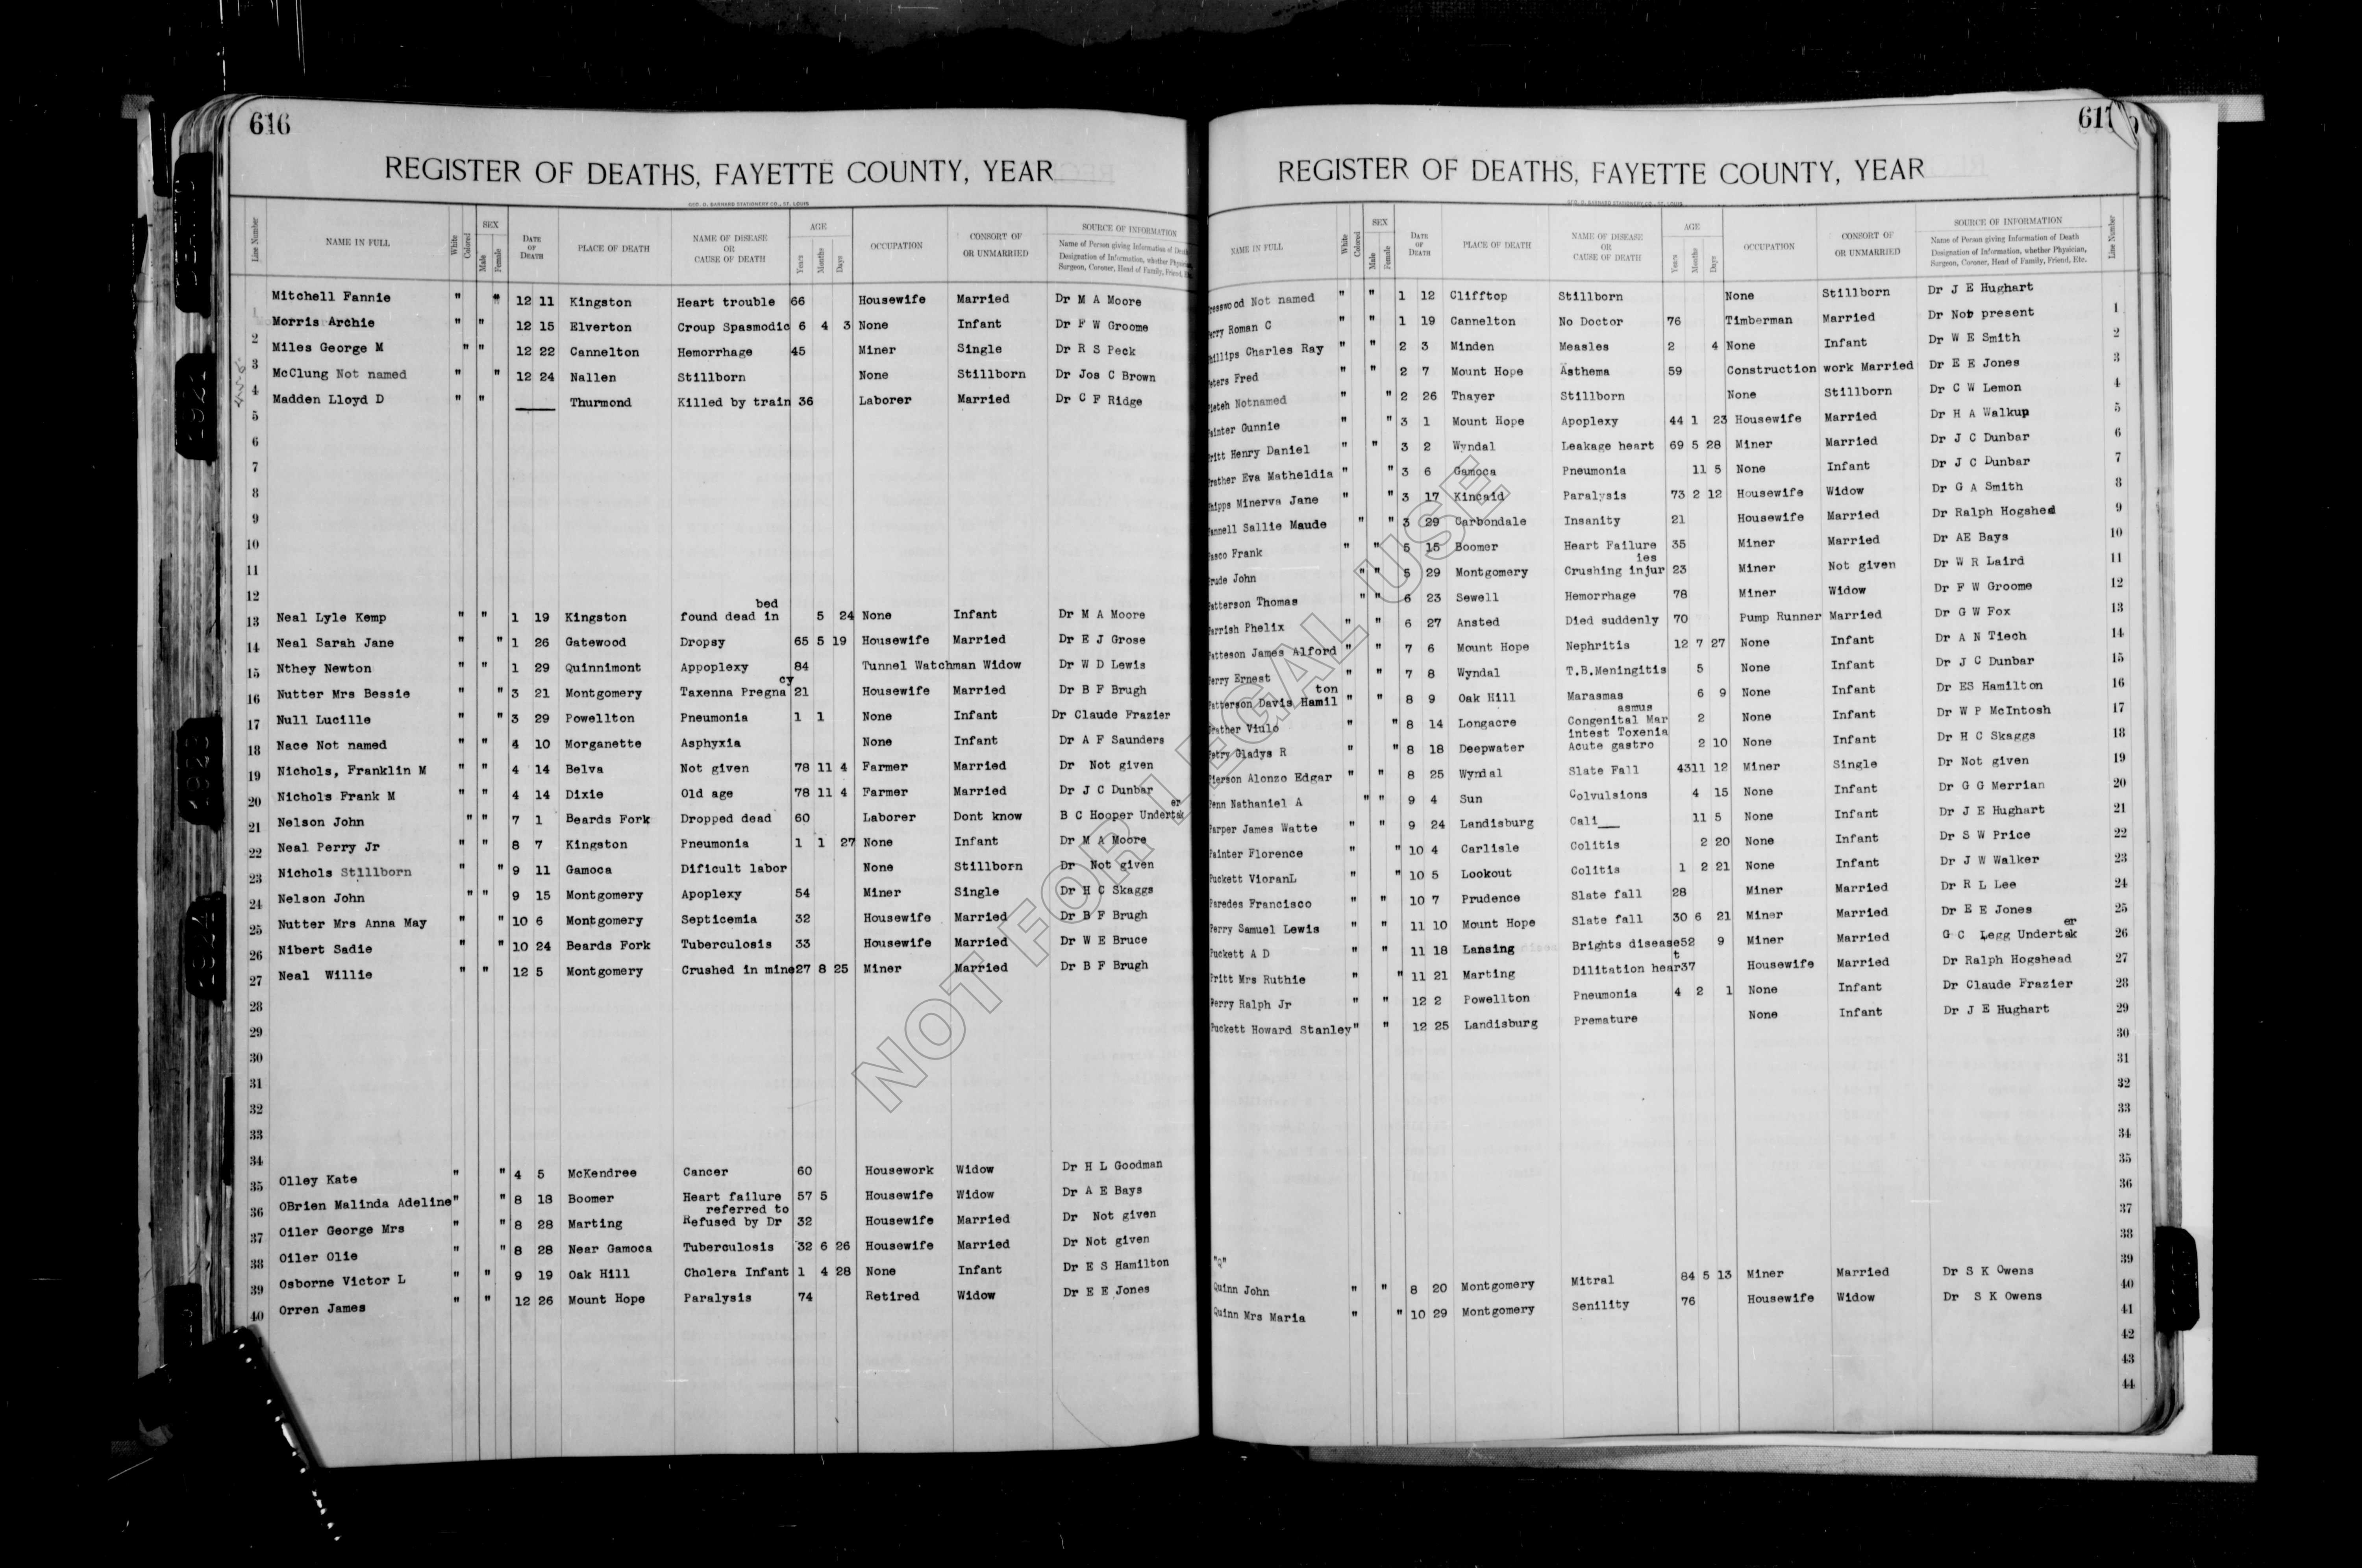 616
REGISTER OF DEATHS, FAYETTE COUNTY, YEAR
GEO. D. BARNARD STATIONERY CO., ST. LOUIS
Line Number NAME IN FULL White Colored SEX Male Female DATE OF DEATH PLACE OF DEATH NAME OF DISEASE OR CAUSE OF DEATH AGE Years Months Days OCCUPATION CONSORT OF OR UNMARRIED SOURCE OF INFORMATION
Name of Person giving Information of Death
Designation of Information, whether Physician,
Surgeon, Coroner, Head of Family, Friend, Etc.
Mitchell Fannie " " 12 11 Kingston Heart trouble 66 Housewife Married Dr M A Moore
1 Morris Archie " " 12 15 Elverton Croup Spasmodic 6 4 3 None Infant Dr F W Groome
2 Miles George M " " 12 22 Cannelton Hemorrhage 45 Miner Single Dr R S Peck
3 McClung Not named " " 12 24 Nallen Stillborn None Stillborn Dr Jos C Brown
4 Madden Lloyd D " " Thurmond Killed by train 36 Laborer Married Dr C F Ridge
5
6
7
8
9
10
11
12
bed
13 Neal Lyle Kemp " " 1 19 Kingston found dead in 5 24 None Infant Dr M A Moore
14 Neal Sarah Jane " " 1 26 Gatewood Dropsy 65 5 19 Housewife Married Dr E J Grose
15 Nthey Newton " " 1 29 Quinnimont Appoplexy 84 Tunnel Watchman Widow Dr W D Lewis
cy
16 Nutter Mrs Bessie " " 3 21 Montgomery Taxenna Pregna 21 Housewife Married Dr B F Brugh
17 Null Lucille " " 3 29 Powellton Pneumonia 1 1 None Infant Dr Claude Frazier
18 Nace Not named " " 4 10 Morganette Asphyxia None Infant Dr A F Saunders
19 Nichols, Franklin M " " 4 14 Belva Not given 78 11 4 Farmer Married Dr Not given
20 Nichols Frank M " " 4 14 Dixie Old age 78 11 4 Farmer Married Dr J C Dunbar
er
21 Nelson John " " 7 1 Beards Fork Dropped dead 60 Laborer Dont know B C Hooper Undertak
22 Neal Perry Jr " " 8 7 Kingston Pneumonia 1 1 27 None Infant Dr M A Moore
23 Nichols Stillborn " 9 11 Gamoca Dificult labor None Stillborn Dr Not given
24 Nelson John " " 9 15 Montgomery Apoplexy 54 Miner Single Dr H C Skaggs
25 Nutter Mrs Anna May " " 10 6 Montgomery Septicemia 32 Housewife Married Dr B F Brugh
26 Nibert Sadie " " 10 24 Beards Fork Tuberculosis 33 Housewife Married Dr W E Bruce
27 Neal Willie " " 12 5 Montgomery Crushed in mine 27 8 25 Miner Married Dr B F Brugh
28
29
30
31
32
33
34
35 Olley Kate " " 4 5 McKendree Cancer 60 Housework Widow Dr H L Goodman
36 OBrien Malinda Adeline " " 8 18 Boomer Heart failure 57 5 Housewife Widow Dr A E Bays
referred to
37 Oiler George Mrs " " 8 28 Marting Refused by Dr 32 Housewife Married Dr Not given
38 Oiler Olie " " 8 28 Near Gamoca Tuberculosis 32 6 26 Housewife Married Dr Not given
39 Osborne Victor L " " 9 19 Oak Hill Cholera Infant 1 4 28 None Infant Dr E S Hamilton
40 Orren James " " 12 26 Mount Hope Paralysis 74 Retired Widow Dr E E Jones
617
REGISTER OF DEATHS, FAYETTE COUNTY, YEAR
GEO. D. BARNARD STATIONERY CO., ST. LOUIS
NAME IN FULL White Colored SEX Male Female DATE OF DEATH PLACE OF DEATH NAME OF DISEASE OR CAUSE OF DEATH AGE Years Months Days OCCUPATION CONSORT OF OR UNMARRIED SOURCE OF INFORMATION Line Number
Name of Person giving Information of Death
Designation of Information, whether Physician,
Surgeon, Coroner, Head of Family, Friend, Etc.
Not named " " 1 12 Clifftop Stillborn None Stillborn Dr J E Hughart
Perry Roman C " " 1 19 Cannelton No Doctor 76 Timberman Married Dr Not present 1
Phillips Charles Ray " " 2 3 Minden Measles 2 4 None Infant Dr W E Smith 2
Peters Fred " " 2 7 Mount Hope Asthema 59 Construction work Married Dr E E Jones 3
Notnamed " " 2 26 Thayer Stillborn None Stillborn Dr C W Lemon 4
Painter Gunnie " " 3 1 Mount Hope Apoplexy 44 1 23 Housewife Married Dr H A Walkup 5
Pritt Henry Daniel " " 3 2 Wyndal Leakage heart 69 5 28 Miner Married Dr J C Dunbar 6
Prather Eva Matheldia " " 3 6 Gamoca Pneumonia 11 5 None Infant Dr J C Dunbar 7
Phipps Minerva Jane " " 3 17 Kincaid Paralysis 73 2 12 Housewife Widow Dr G A Smith 8
Pannell Sallie Maude " " 3 29 Carbondale Insanity 21 Housewife Married Dr Ralph Hogshed 9
Pasco Frank " " 5 15 Boomer Heart Failure 35 Miner Married Dr AE Bays 10
ies
Prude John " " 5 29 Montgomery Crushing injur 23 Miner Not given Dr W R Laird 11
Patterson Thomas " " 6 23 Sewell Hemorrhage 78 Miner Widow Dr F W Groome 12
Parrish Phelix " " 6 27 Ansted Died suddenly 70 Pump Runner Married Dr G W Fox 13
Patteson James Alford " " 7 6 Mount Hope Nephritis 12 7 27 None Infant Dr A N Tiech 14
Perry Ernest " " 7 8 Wyndal T.B.Meningitis 5 None Infant Dr J C Dunbar 15
ton
Patterson Davis Hamil " " 8 9 Oak Hill Marasmas 6 9 None Infant Dr ES Hamilton 16
asmus
Prather Viulo " " 8 14 Longacre Congenital Mar 2 None Infant Dr W P McIntosh 17
intest Toxenia
Petry Gladys R " " 8 18 Deepwater Acute gastro 2 10 None Infant Dr H C Skaggs 18
Pierson Alonzo Edgar " " 8 25 Wyndal Slate Fall 43 11 12 Miner Single Dr Not given 19
Penn Nathaniel A " " 9 4 Sun Colvulsions 4 15 None Infant Dr G G Merrian 20
Parper James Watte " " 9 24 Landisburg Cali__ 11 5 None Infant Dr J E Hughart 21
Painter Florence " " 10 4 Carlisle Colitis 2 20 None Infant Dr S W Price 22
Puckett VioranL " " 10 5 Lookout Colitis 1 2 21 None Infant Dr J W Walker 23
Paredes Francisco " " 10 7 Prudence Slate fall 28 Miner Married Dr R L Lee 24
Perry Samuel Lewis " " 11 10 Mount Hope Slate fall 30 6 21 Miner Married Dr E E Jones 25
er
Puckett A D " " 11 18 Lansing Brights disease 52 9 Miner Married G C Legg Undertak 26
t
Pritt Mrs Ruthie " " 11 21 Marting Dilitation hear 37 Housewife Married Dr Ralph Hogshead 27
Perry Ralph Jr " " 12 2 Powellton Pneumonia 4 2 1 None Infant Dr Claude Frazier 28
Puckett Howard Stanley " " 12 25 Landisburg Premature None Infant Dr J E Hughart 29
30
31
32
33
34
35
36
37
38
"Q" 39
Quinn John " " 8 20 Montgomery Mitral 84 5 13 Miner Married Dr S K Owens 40
Quinn Mrs Maria " " 10 29 Montgomery Senility 76 Housewife Widow Dr S K Owens 41
42
43
44
NOT FOR LEGAL USE
1921
1923
1924